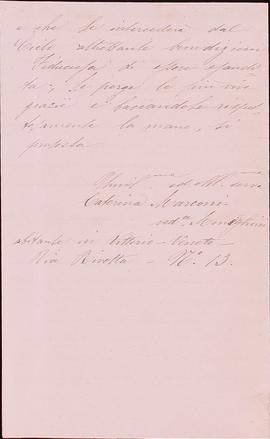 e che le intercederà dal
Cielo altrettante benedizioni.
Fiduciosa di essere esaudi-
ta, le porge le più vive
grazie e baciandole rispet-
tosamente la mano, si
protesta
Umil.ma ed Obb. serva
Caterina Marconi
ved.a Meneghini
abitante in Vittorio-Veneto
Via Rivetta - N.o 13.